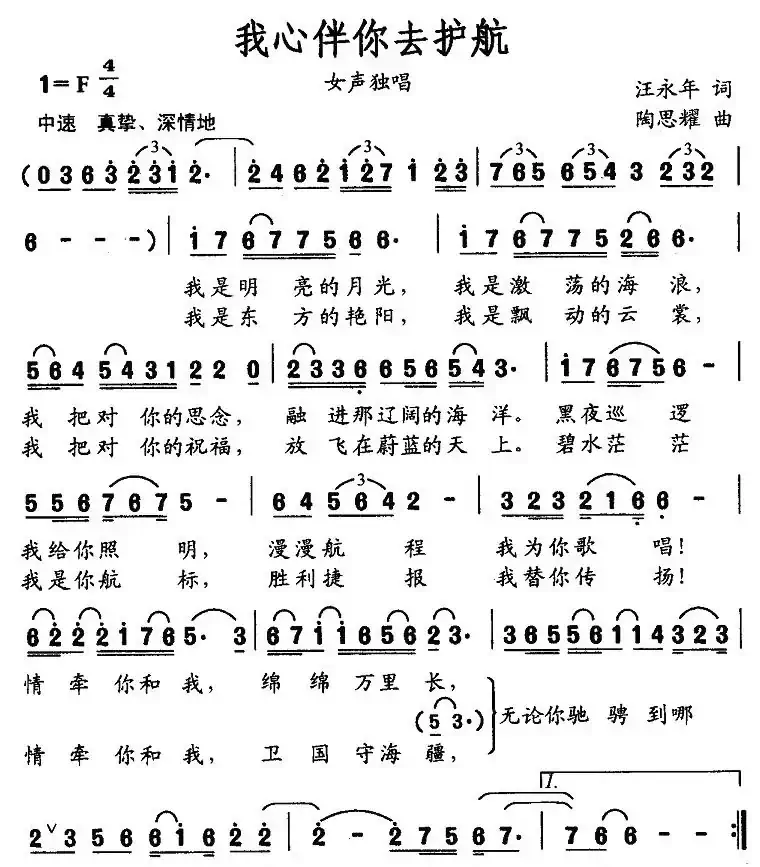 我心伴你去护航
1=F 4/4
女声独唱
汪永年 词
中速 真挚、深情地
陶思耀 曲
(0 3 6 3 2 3 1 2· | 2 4 6 2 1 2 7 1 2 3 | 7 6 5 6 5 4 3 2 3 2 |
6 - - -) | 1 7 6 7 7 5 6 6· | 1 7 6 7 7 5 2 6 6· |
我是明 亮的月光， 我是激 荡的海 浪，
我是东 方的艳阳， 我是飘 动的云 裳，
5 6 4 5 4 3 1 2 2 0 | 2 3 3 6 6 5 6 5 4 3· | 1 7 6 7 5 6 - |
我 把对 你的思念， 融 进那辽阔的海 洋。 黑夜巡 逻
我 把对 你的祝福， 放 飞在蔚蓝的天 上。 碧水茫 茫
5 5 6 7 6 7 5 - | 6 4 5 6 4 2 - | 3 2 3 2 1 6 6 - |
我给你照 明， 漫漫航 程 我为你歌 唱！
我是你航 标， 胜利捷 报 我替你传 扬！
6 2 2 2 1 7 6 5· 3 | 6 7 1 1 6 5 6 2 3· | 3 6 5 5 6 1 1 4 3 2 3 |
情 牵 你和 我， 绵 绵 万里 长，
(5 3·) 无论你驰 骋 到哪
情 牵 你和 我， 卫 国 守海 疆，
1.
2 ∨ 3 5 6 6 1 6 2 2 | 2 - 2 7 5 6 7· | 7 6 6 - - :‖